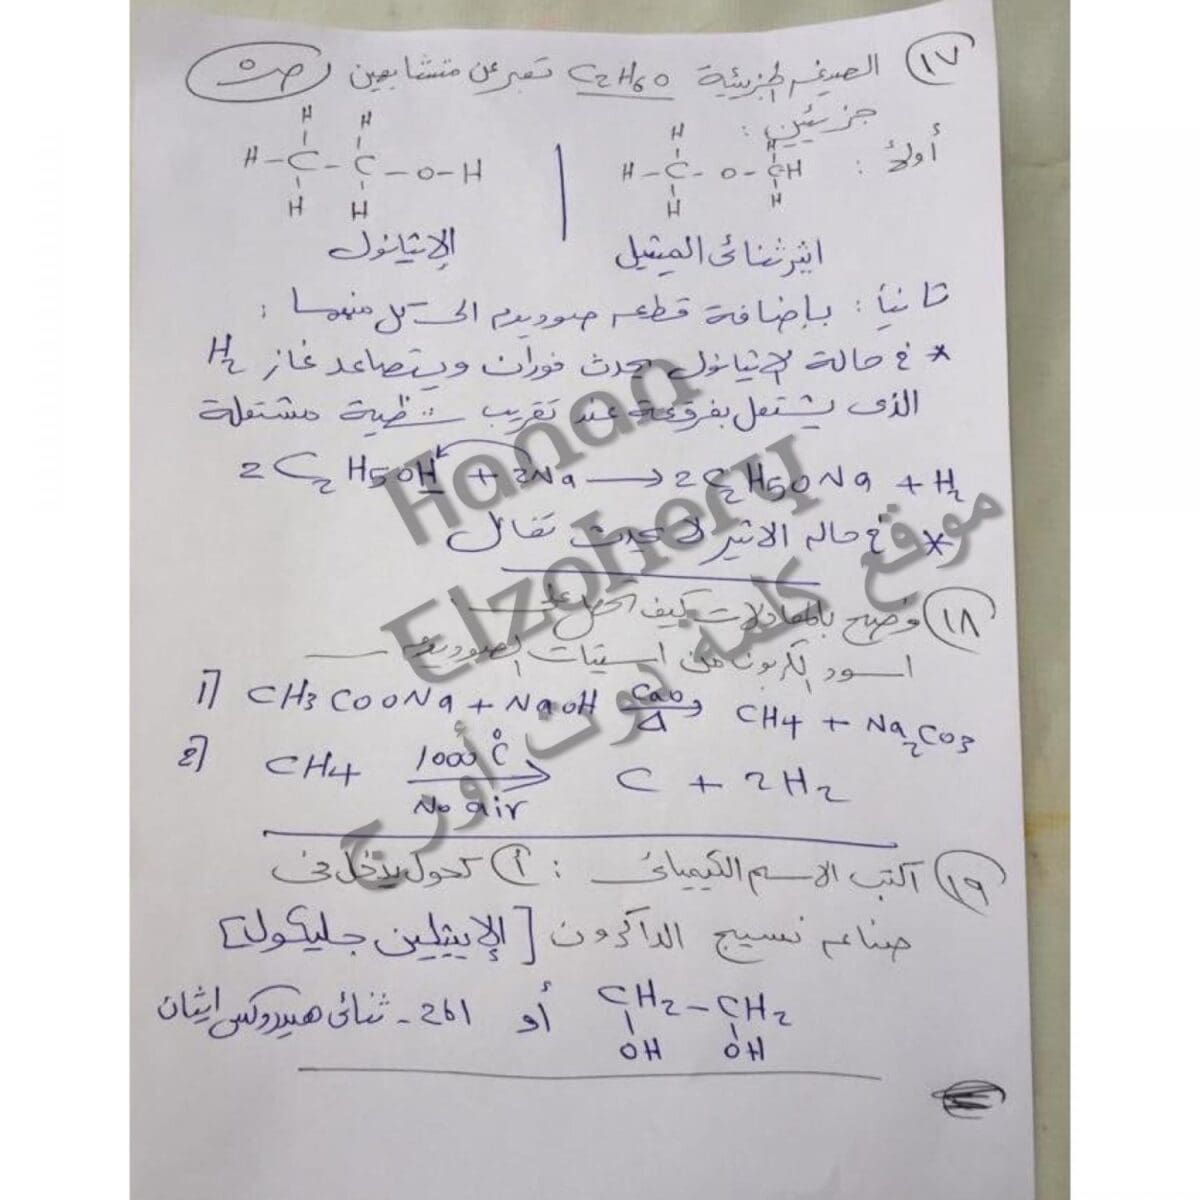 ١٧ الصيغه الجزيئية C2H6O تعبر عن متشابهين ص٥
جزيئين :
أولاً :
H H
H-C-C-O-H
H H
H H
H-C-O-CH
H H
الإيثانول
ايثر ثنائى الميثيل
ثانياً : بإضافة قطعه صوديوم الى كل منهما :
* فى حالة الإيثانول يحدث فوران ويتصاعد غاز H2
الذى يشتعل بفرقعة عند تقريب شظية مشتعلة
2C2H5OH + 2Na → 2C2H5ONa + H2
* فى حاله الاثير لا يحدث تفاعل
١٨ وضح بالمعادلات كيف تحصل على :
اسود الكربون من اسيتات الصوديوم
1) CH3COONa + NaOH CaO Δ → CH4 + Na2CO3
2) CH4 1000 °C No air → C + 2H2
١٩ اكتب الاسم الكيميائى : أ كحول يدخل فى
صناعه نسيج الداكرون [الإيثيلين جليكول]
CH2-CH2 أو 2،1 - ثنائى هيدروكسى ايثان
OH OH
Hanan
Elzohery
موقع كلمة دوت أورج